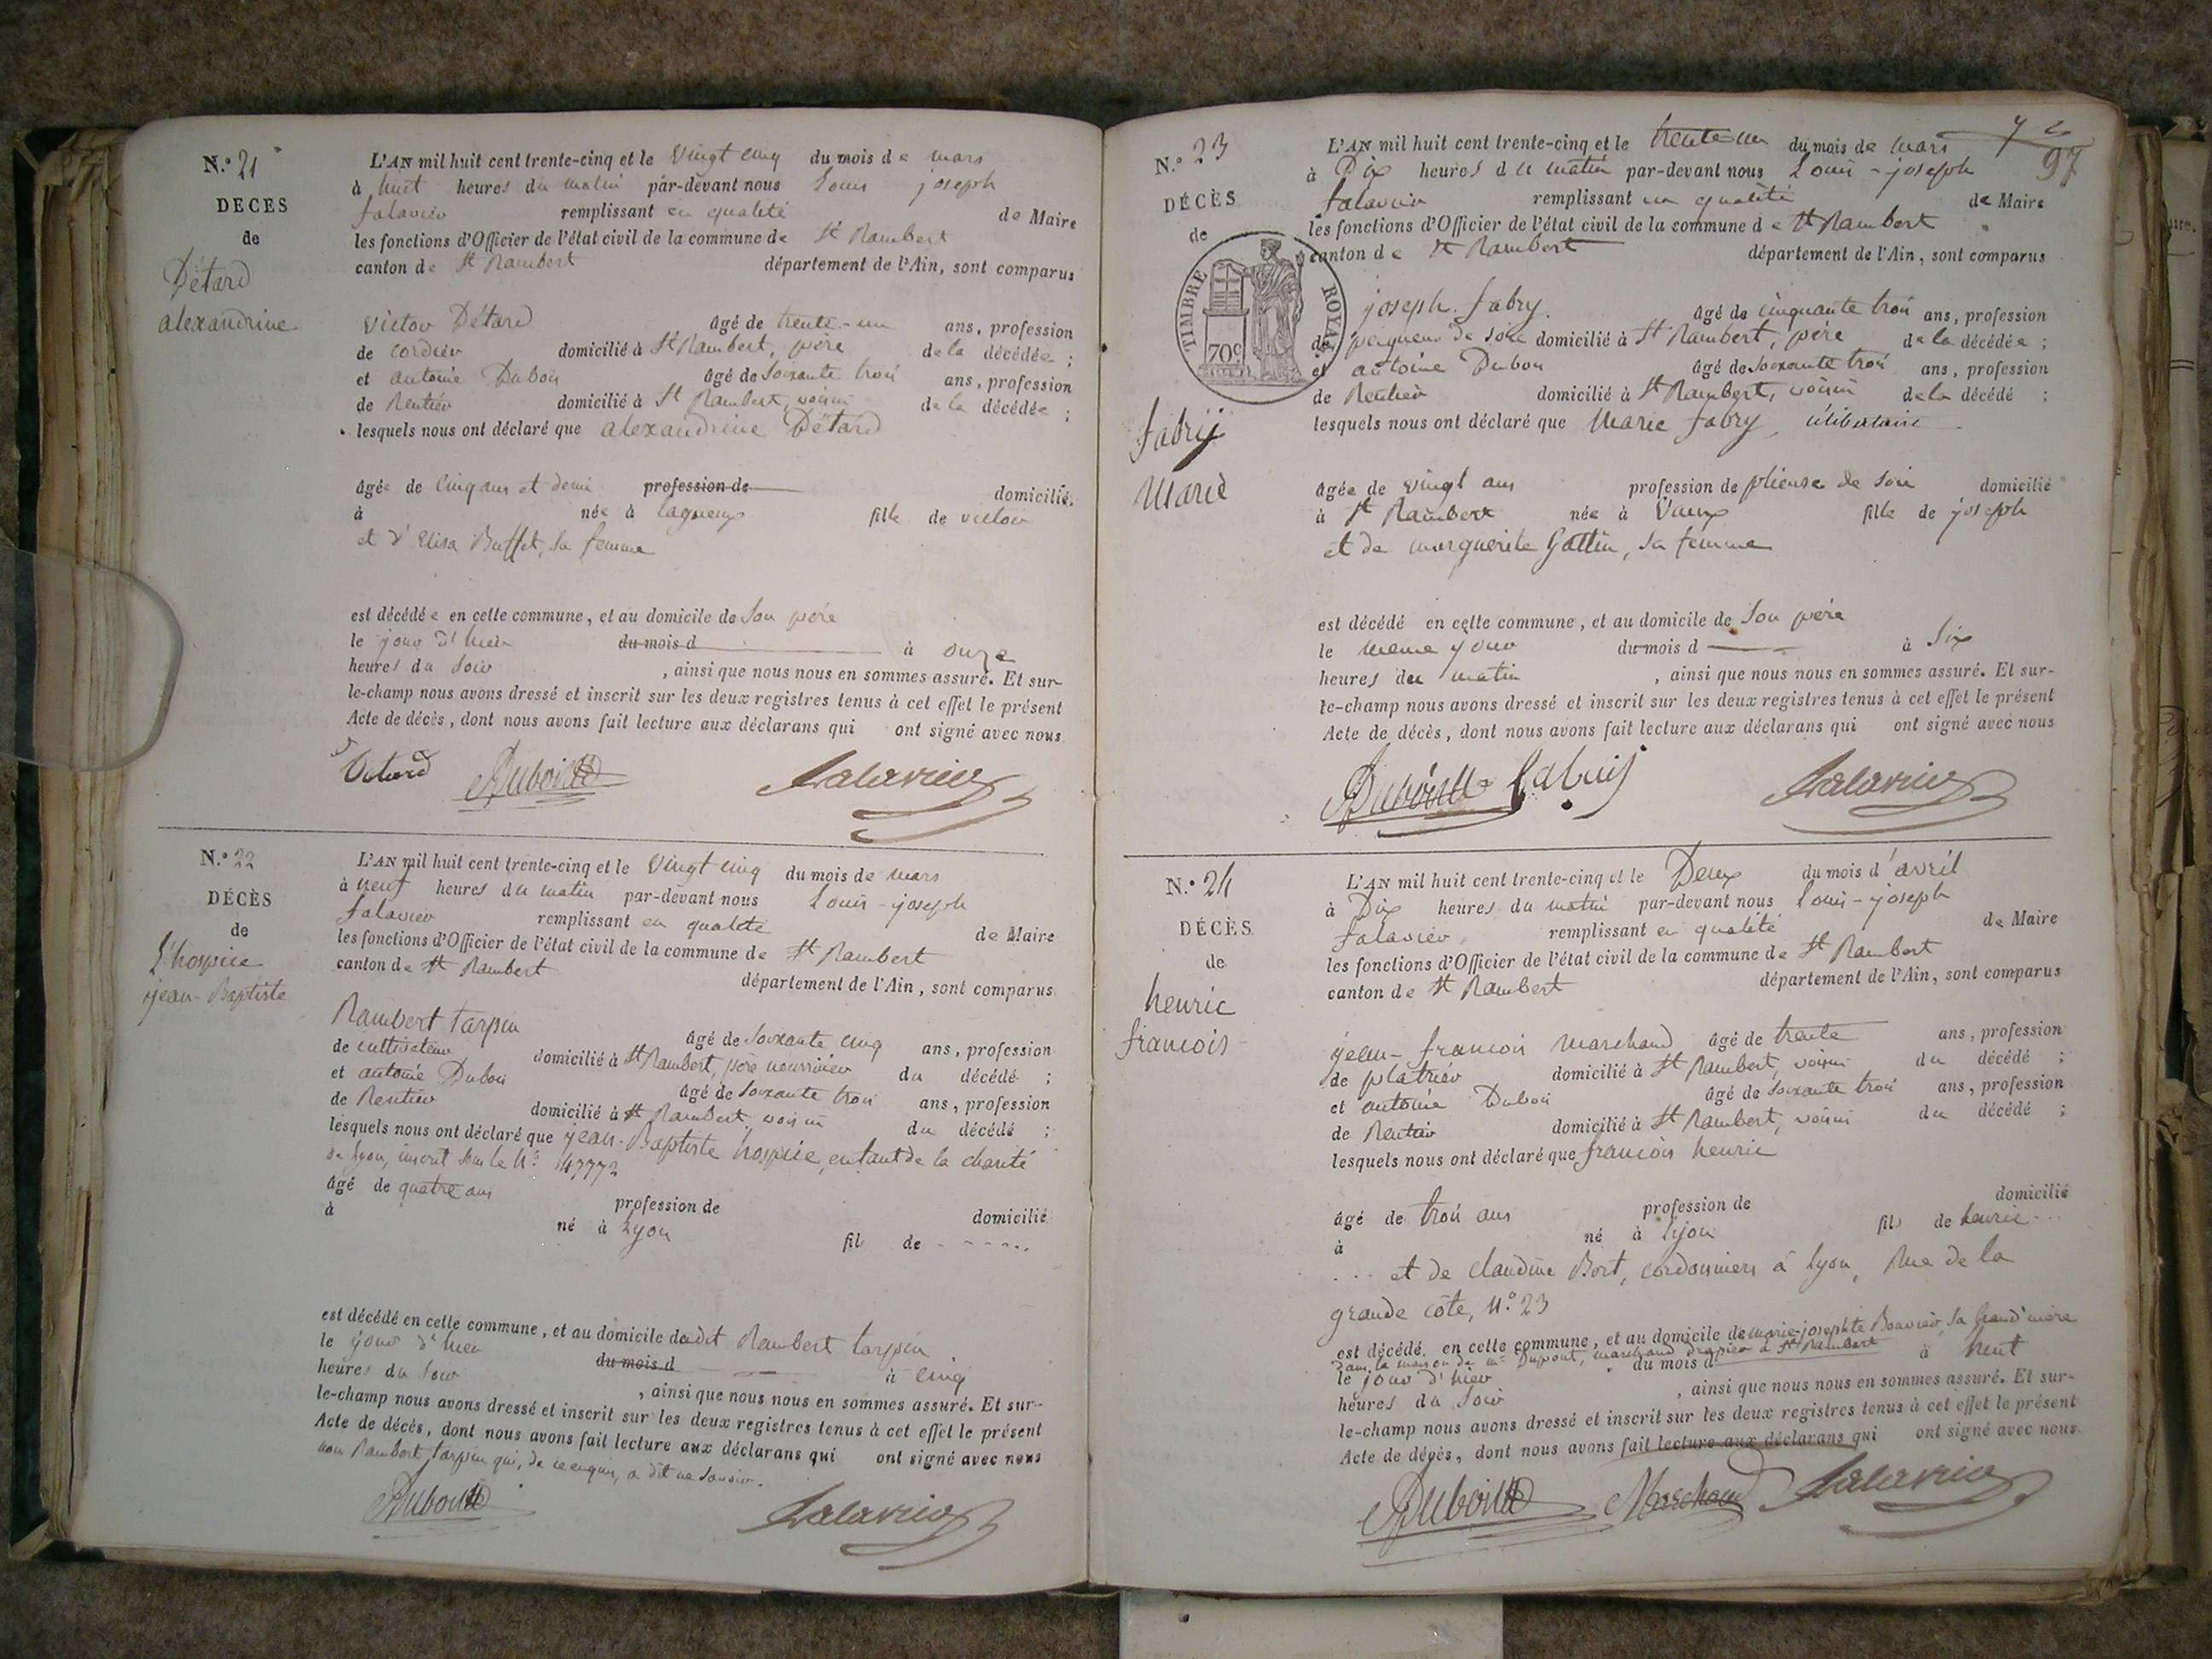 N.° 21
DECES
de
Détard
alexandrine
L'AN mil huit cent trente-cinq et le vingt cinq du mois de mars
à huit heures du matin par-devant nous Louis joseph
falavier remplissant en qualité de Maire
les fonctions d'Officier de l'état civil de la commune de St Rambert
canton de St Rambert département de l'Ain, sont comparus
victor Détard âgé de trente-un ans, profession
de cordier domicilié à St Rambert, père de la décédée ;
et antoine Dubois âgé de soixante trois ans, profession
de Rentier domicilié à St Rambert, voisin de la décédée ;
lesquels nous ont déclaré que alexandrine Détard
âgée de cinq ans et demi profession de domicilié
à née à lagneux fille de victor
et d'Elisa Buffet, sa femme
est décédée en cette commune, et au domicile de son père
le jour d'hier du mois d à onze
heures du soir , ainsi que nous nous en sommes assuré. Et sur-
le-champ nous avons dressé et inscrit sur les deux registres tenus à cet effet le présent
Acte de décès, dont nous avons fait lecture aux déclarans qui ont signé avec nous
Détard Dubois falavier
N.° 22
DÉCÈS
de
L'hospice
jean-Baptiste
L'AN mil huit cent trente-cinq et le vingt cinq du mois de mars
à neuf heures du matin par-devant nous Louis-joseph
falavier remplissant en qualité de Maire
les fonctions d'Officier de l'état civil de la commune de St Rambert
canton de St Rambert département de l'Ain, sont comparus
Rambert tarpin âgé de soixante cinq ans, profession
de cultivateur domicilié à St Rambert, père nourricier du décédé ;
et antoine Dubois âgé de soixante trois ans, profession
de Rentier domicilié à St Rambert, voisin du décédé ;
lesquels nous ont déclaré que jean-Baptiste hospice, enfant de la charité
de Lyon, inscrit sous le N°. 47772
âgé de quatre ans profession de domicilié
à né à Lyon fils de - - - - -
est décédé en cette commune, et au domicile dudit Rambert tarpin
le jour d'hier du mois d à cinq
heures du soir , ainsi que nous nous en sommes assuré. Et sur-
le-champ nous avons dressé et inscrit sur les deux registres tenus à cet effet le présent
Acte de décès, dont nous avons fait lecture aux déclarans qui ont signé avec nous
non Rambert tarpin qui, de ce enquis, a dit ne savoir.
Dubois falavier
97
N.° 23
DÉCÈS
de
TIMBRE ROYAL
70c
fabry
Marie
L'AN mil huit cent trente-cinq et le trente-un du mois de mars
à Dix heures du matin par-devant nous Louis-joseph
falavier remplissant en qualité de Maire
les fonctions d'Officier de l'état civil de la commune de St Rambert
canton de St Rambert département de l'Ain, sont comparus
joseph fabry. âgé de cinquante trois ans, profession
de peigneur de soie domicilié à St Rambert, père de la décédée ;
et antoine Dubois âgé de soixante trois ans, profession
de Rentier domicilié à St Rambert, voisin de la décédé ;
lesquels nous ont déclaré que Marie fabry, célibataire
âgée de vingt ans profession de plieuse de soie domicilié
à St Rambert née à Vaux fille de joseph
et de marguerite Gottin, sa femme
est décédé en cette commune, et au domicile de son père
le meme jour du mois d à six
heures du matin , ainsi que nous nous en sommes assuré. Et sur-
le-champ nous avons dressé et inscrit sur les deux registres tenus à cet effet le présent
Acte de décès, dont nous avons fait lecture aux déclarans qui ont signé avec nous
Dubois fabrij falavier
N.° 24
DÉCÈS
de
henric
francois
L'AN mil huit cent trente-cinq et le Deux du mois d'avril
à Dix heures du matin par-devant nous Louis-joseph
falavier remplissant en qualité de Maire
les fonctions d'Officier de l'état civil de la commune de St Rambert
canton de St Rambert département de l'Ain, sont comparus
jean-francois marchand âgé de trente ans, profession
de platrier domicilié à St Rambert, voisin du décédé ;
et antoine Dubois âgé de soixante trois ans, profession
de Rentier domicilié à St Rambert, voisin du décédé ;
lesquels nous ont déclaré que francois henric
âgé de trois ans profession de domicilié
à né à Lyon fils de henric ...
... et de Claudine Bort, cordonniers à Lyon, Rue de la
grande côte, N.° 23
est décédé en cette commune, et au domicile de marie-josephte Bouvier, sa Grand'mère
dans la maison de Mr. Dupont, marchand drapier à St Rambert
le jour d'hier du mois d à neuf
heures du soir , ainsi que nous nous en sommes assuré. Et sur-
le-champ nous avons dressé et inscrit sur les deux registres tenus à cet effet le présent
Acte de décès, dont nous avons fait lecture aux déclarans qui ont signé avec nous.
Dubois Marchand falavier